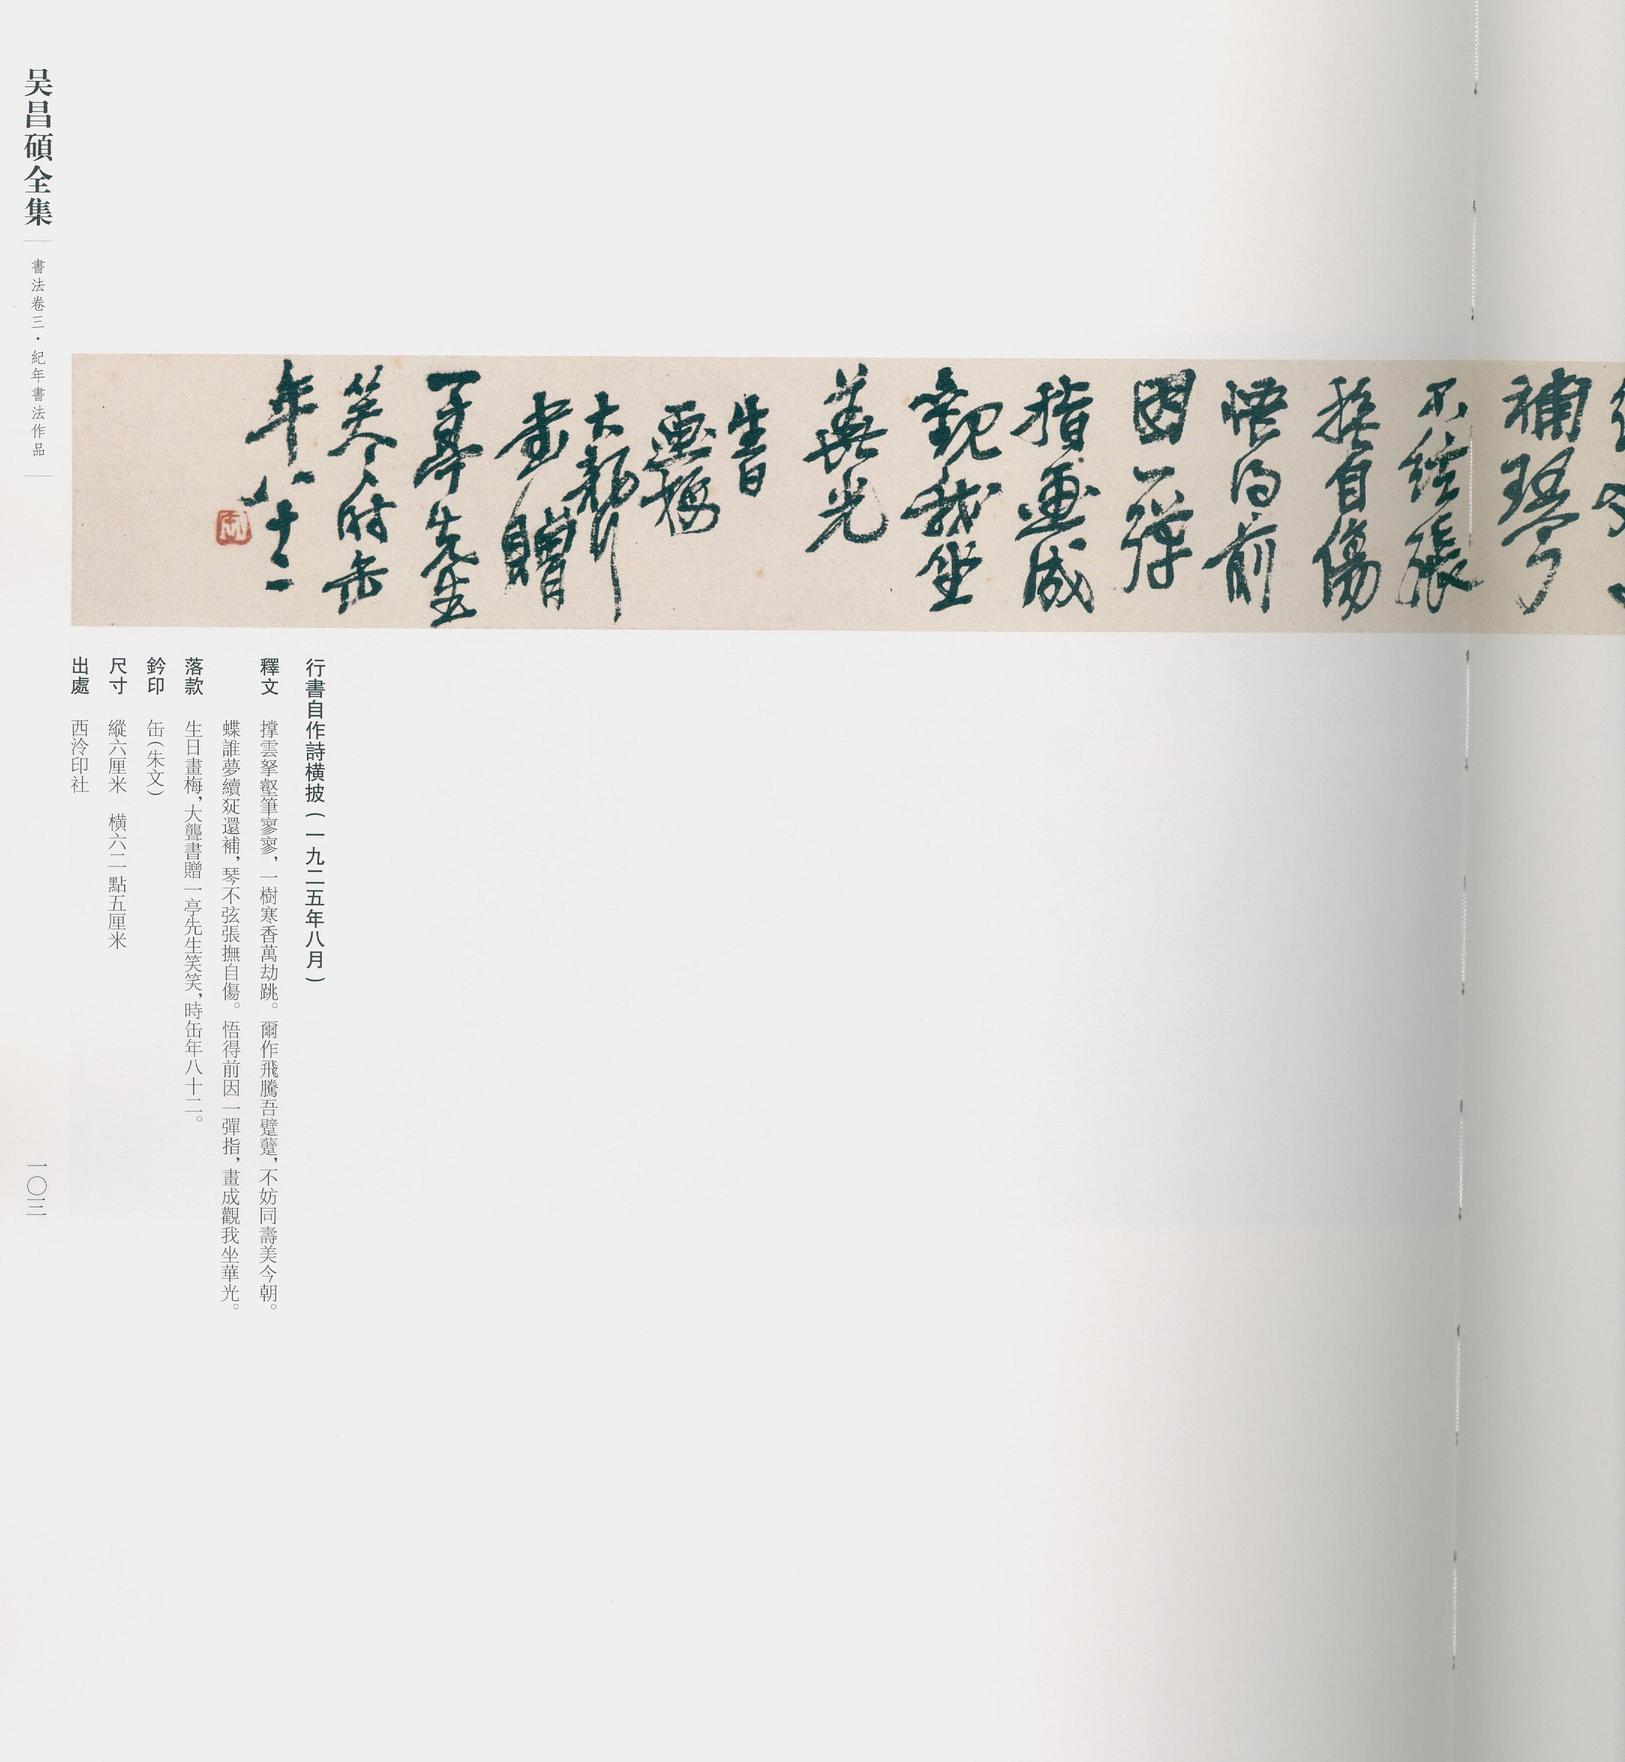 補琴
不弦張
撫自傷
悟得前
因一彈
指畫成
觀我坐
華光
生日
畫梅
大聾
書贈
一亭先生
笑笑時缶
年八十二
行書自作詩橫披（一九二五年八月）
釋文　撑雲拏壑筆寥寥，一樹寒香萬劫跳。爾作飛騰吾躄躠，不妨同壽美今朝。
蝶誰夢續㷼還補，琴不弦張撫自傷。悟得前因一彈指，畫成觀我坐華光。
落款　生日畫梅，大聾書贈一亭先生笑笑，時缶年八十二。
鈐印　缶（朱文）
尺寸　縱六厘米　橫六二點五厘米
出處　西泠印社
吴昌碩全集
書法卷三·紀年書法作品
一〇三